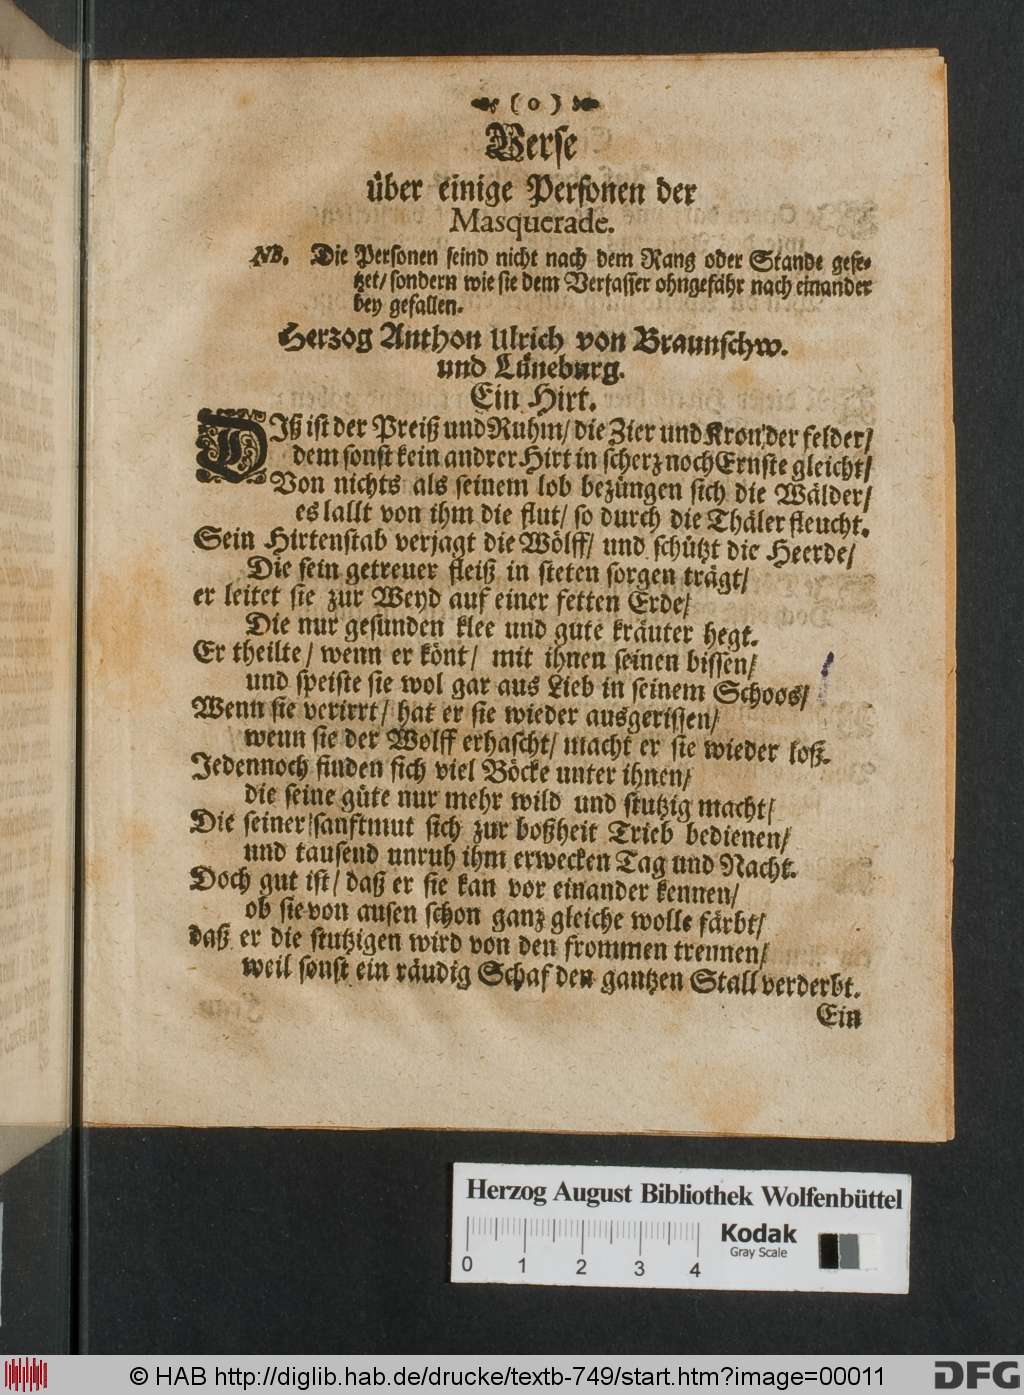 ( o )
Verse
über einige Personen der
Masquerade.
NB. Die Personen seind nicht nach dem Rang oder Stande gese-
tzet/ sondern wie sie dem Verfasser ohngefähr nach einander
bey gefallen.
Herzog Anthon Ulrich von Braunschw.
und Lüneburg.
Ein Hirt.
DIß ist der Preiß und Ruhm/ die Zier und Kron der felder/
dem sonst kein andrer Hirt in scherz noch Ernste gleicht/
Von nichts als seinem lob bezüngen sich die Wälder/
es lallt von ihm die flut/ so durch die Thäler fleucht.
Sein Hirtenstab verjagt die Wölff/ und schützt die Heerde/
Die sein getreuer fleiß in steten sorgen trägt/
er leitet sie zur Weyd auf einer fetten Erde/
Die nur gesunden klee und gute kräuter hegt.
Er theilte/ wenn er könt/ mit ihnen seinen bissen/
und speiste sie wol gar aus Lieb in seinem Schoos/
Wenn sie verirrt/ hat er sie wieder ausgerissen/
wenn sie der Wolff erhascht/ macht er sie wieder loß.
Jedennoch finden sich viel Böcke unter ihnen/
die seine güte nur mehr wild und stutzig macht/
Die seiner sanftmut sich zur boßheit Trieb bedienen/
und tausend unruh ihm erwecken Tag und Nacht.
Doch gut ist/ daß er sie kan vor einander kennen/
ob sie von ausen schon ganz gleiche wolle färbt/
daß er die stutzigen wird von den frommen trennen/
weil sonst ein räudig Schaf den gantzen Stall verderbt.
Ein
Herzog August Bibliothek Wolfenbüttel
0 1 2 3 4
Kodak
Gray Scale
© HAB http://diglib.hab.de/drucke/textb-749/start.htm?image=00011
DFG